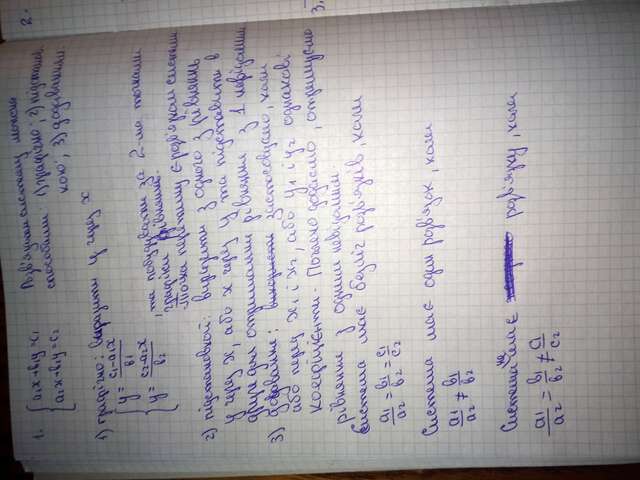 2.
3.
1. { a₁x+b₁y=c₁
a₂x+b₂y=c₂
Розв'язати систему можна
способами: 1) графічно; 2) підстанов
кою; 3) додаванням
1) графічно: виразити y через x
{ y = c₁-a₁x / b₁
y = c₂-a₂x / b₂
, та побудувати за 2-ма точками
графіки рівнянь.
Точка перетину є розв'язком системи
2) підстановкой: виразити з одного рівняння
y через x, або x через y та підставити в
друге далі отримаєми рівняння з 1 невідомим
3) додавання: використ застосовуємо, коли
або перед x₁ і x₂, або y₁ і y₂ однакові
коефіцієнти. Почленно додаємо, отримуємо
рівняння з одним невідомим.
Система має безліч розв'язків, коли
a₁/a₂ = b₁/b₂ = c₁/c₂
Система має один розв'язок, коли
a₁/a₂ ≠ b₁/b₂
Система не має розв'язку, коли
a₁/a₂ = b₁/b₂ ≠ c₁/c₂